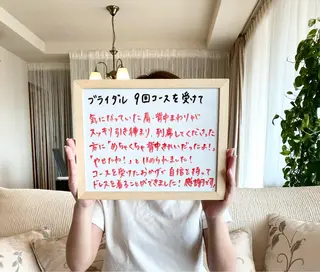 ブライダル 9回コースを受けて
気になっていた肩・背中まわりが
スッキリ引き締まり、列席してくださった
方に「めちゃくちゃ背中きれいだったよ!」
「やせたね!」といわれました!
コースを受けたおかげで自信を持って
ドレスを着ることができました!感謝です!